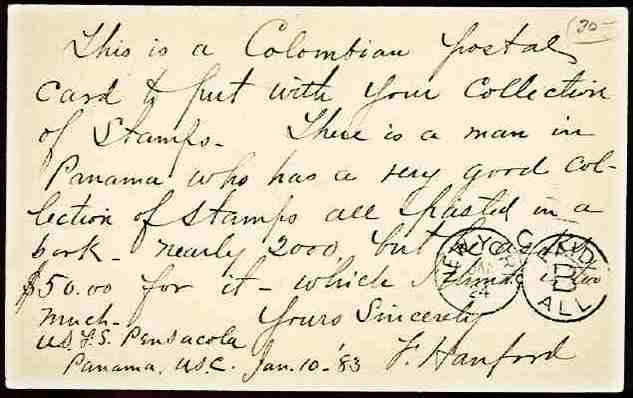 (30-
This is a Colombian postal
card to put with your collection
of Stamps. There is a man in
Panama who has a very good col-
lection of stamps all pasted in a
book - nearly 2000, but he asks
$50.00 for it - which I think is too
much. Yours Sincerely
U.S.F.S. Pensacola
Panama, U.S.C. Jan. 10-'83 F. Hanford
NEW Y
PAID
ALL